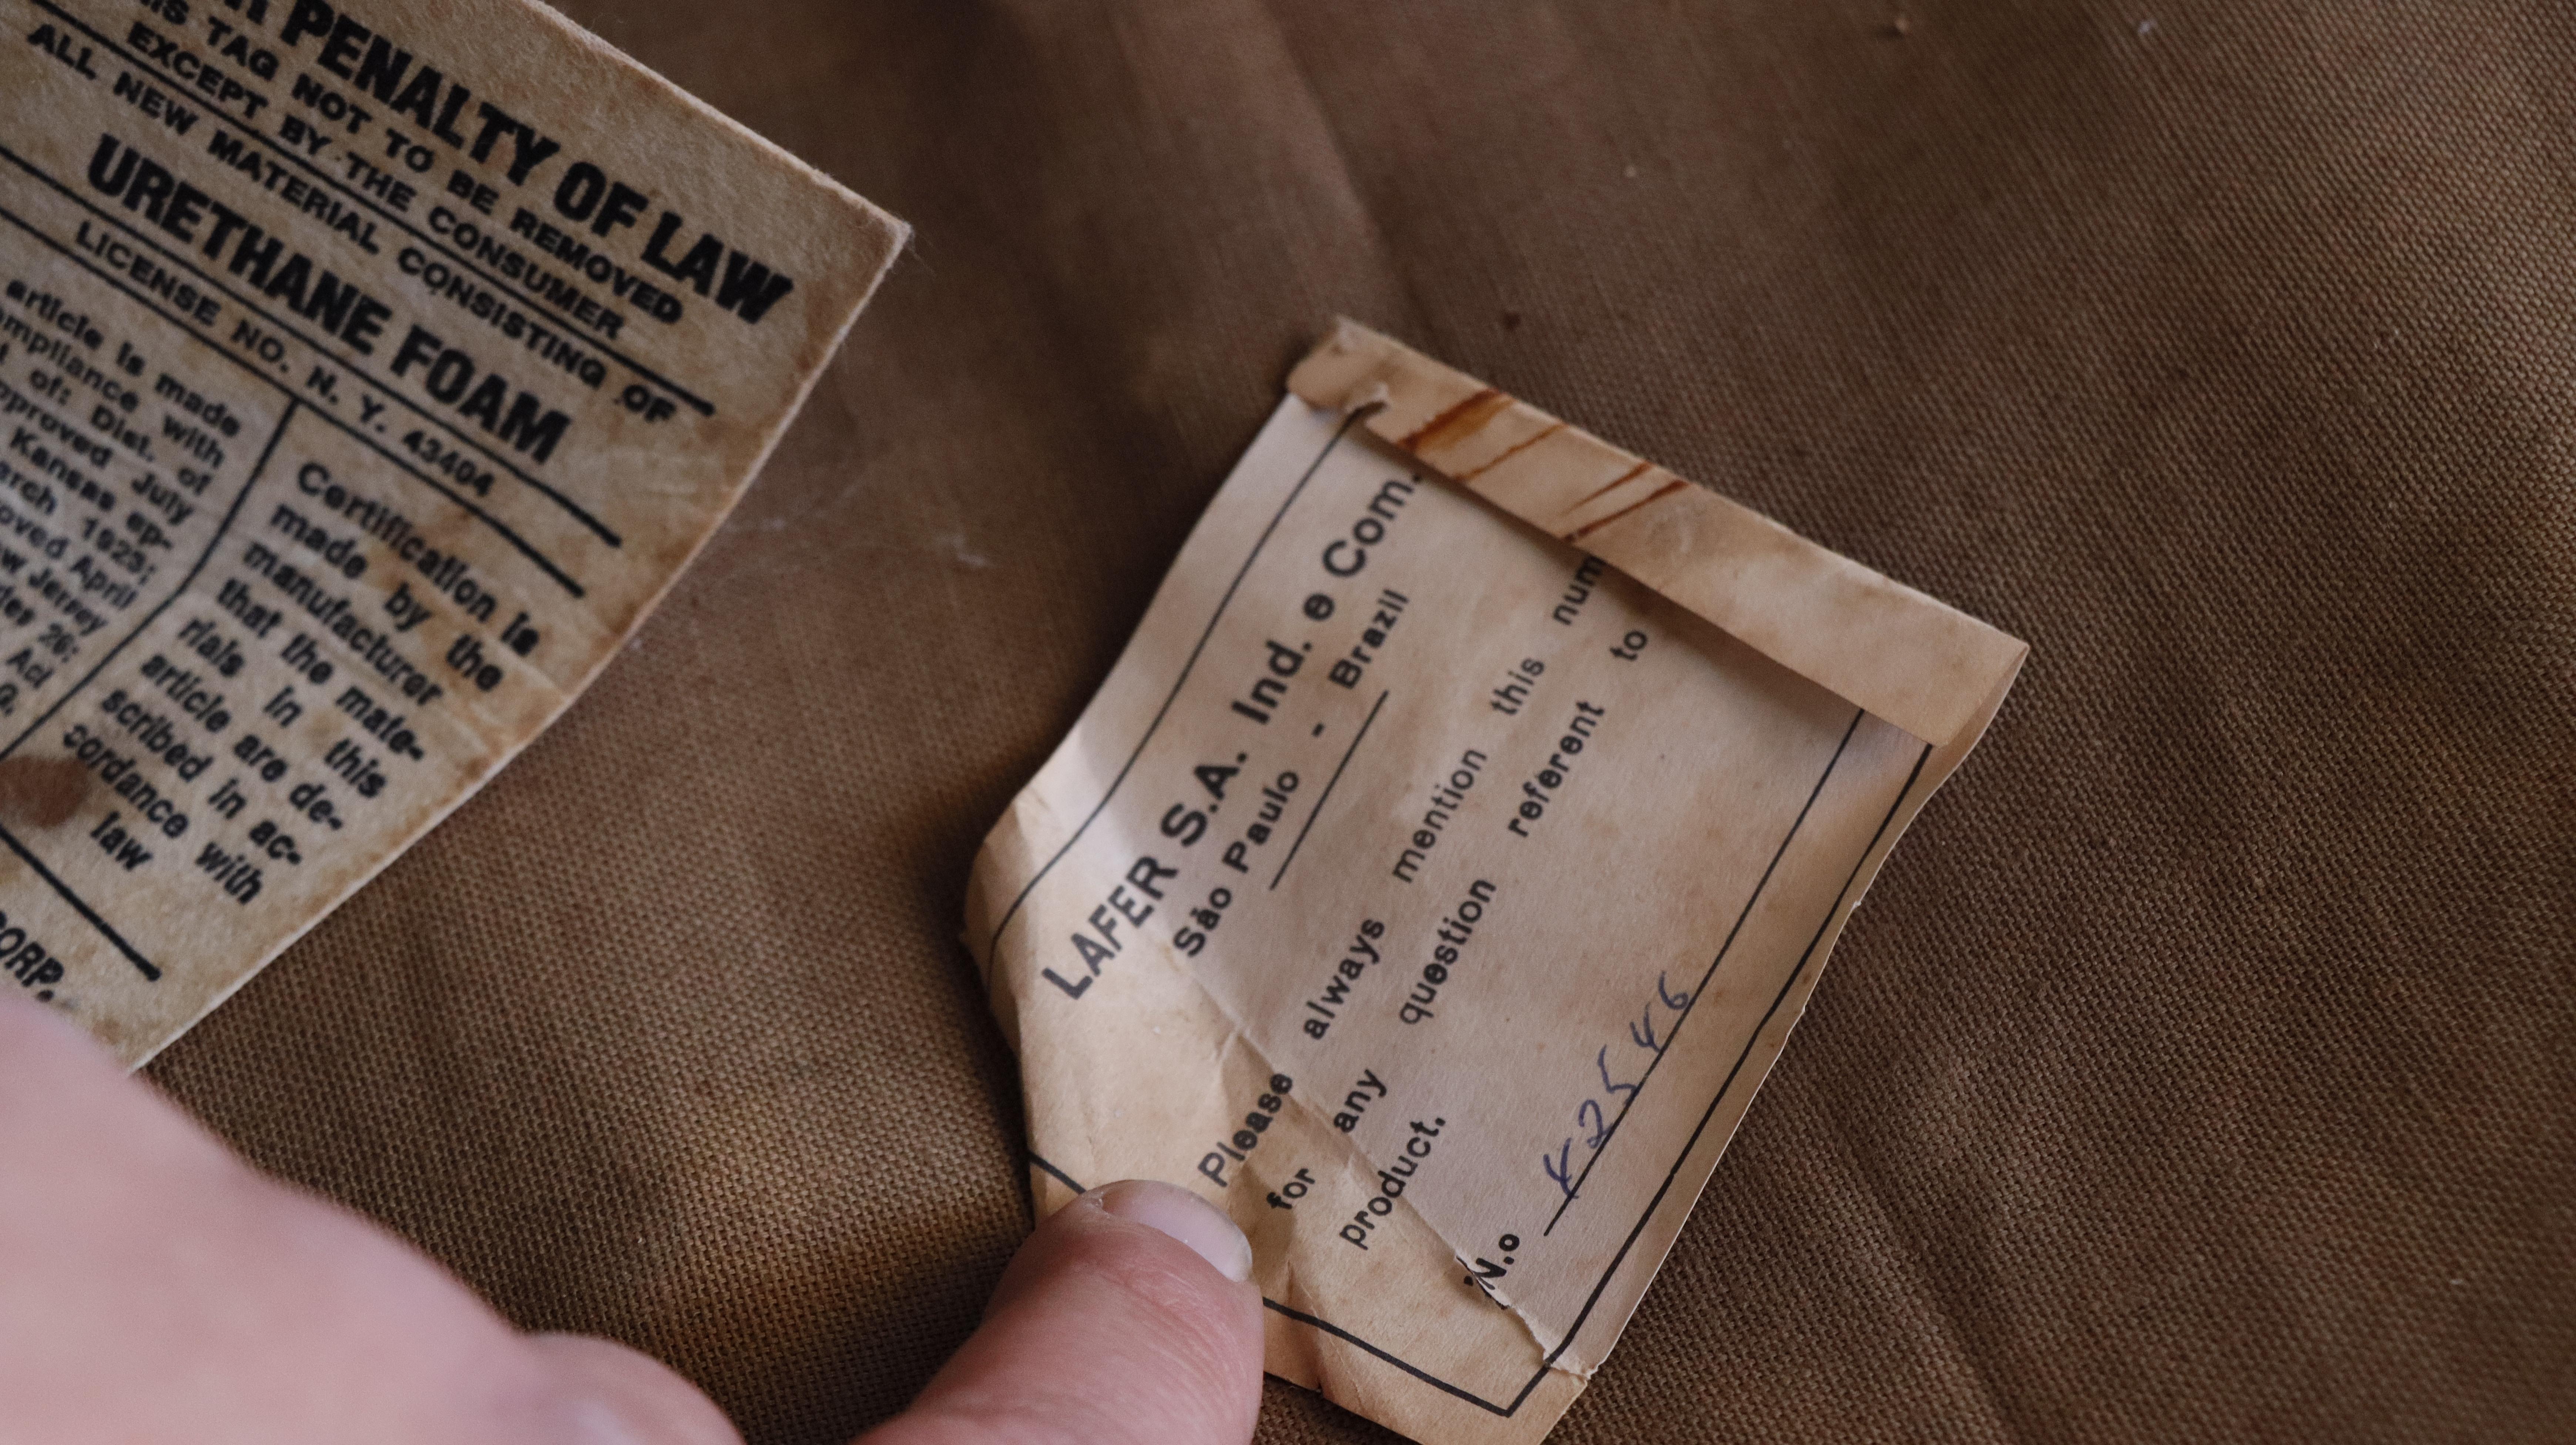 PENALTY OF LAW
TAG NOT TO BE REMOVED
EXCEPT BY THE CONSUMER
ALL NEW MATERIAL CONSISTING OF
URETHANE FOAM
LICENSE NO. N. Y. 43404
article is made
with
of: Dist. of
July
Kansas ap-
1923;
April
Jersey
26;
Act
Certification is
made by the
manufacturer
that the mate-
rials in this
article are de-
scribed in ac-
cordance with
law
CORP.
LAFER S.A. Ind. e Com.
São Paulo - Brazil
Please always mention this num
for any question referent to
product.
N.o 42546